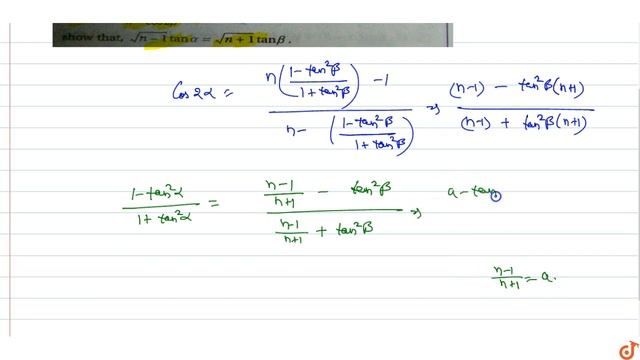 show that, √n−1 tan α = √n+1 tan β .
Cos 2α = n(1−tan²β / 1+tan²β) −1 / n − (1−tan²β / 1+tan²β) ⇒ (n−1) − tan²β(n+1) / (n−1) + tan²β(n+1)
1−tan²α / 1+tan²α = n−1/n+1 − tan²β / n−1/n+1 + tan²β ⇒ a − tan
n−1/n+1 = a.